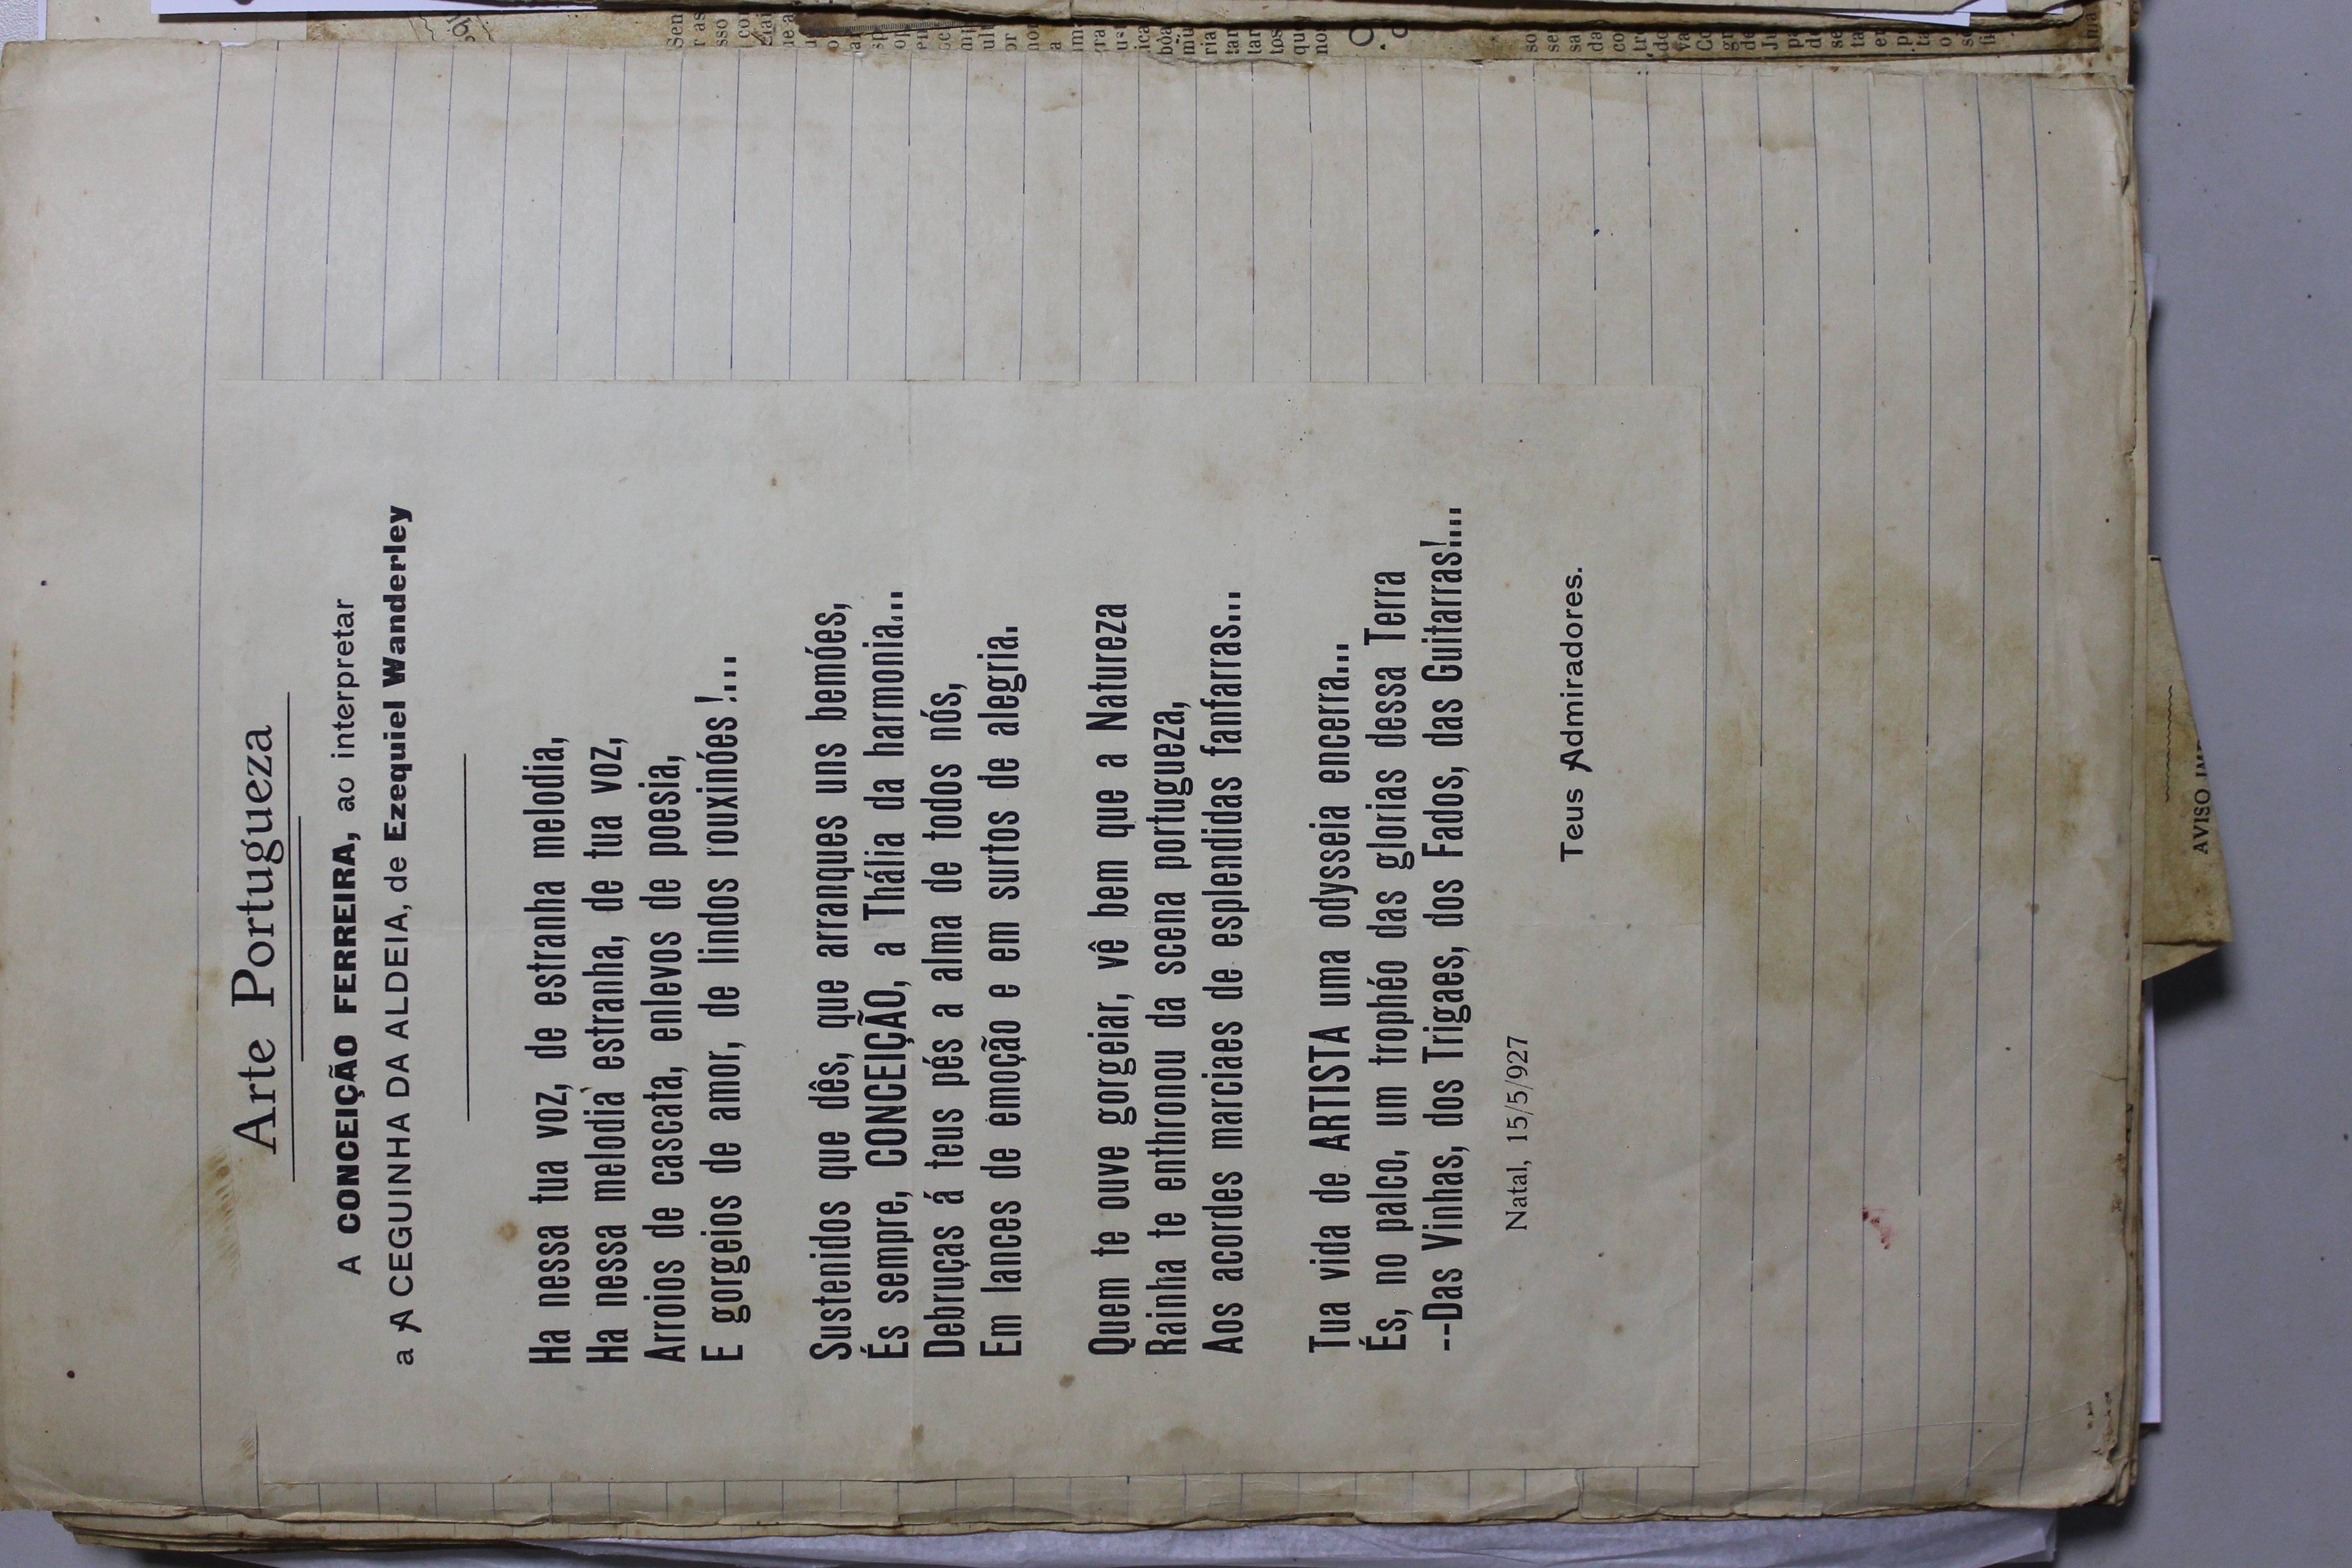 Arte Portugueza
A CONCEIÇÃO FERREIRA, ao interpretar
a A CEGUINHA DA ALDEIA, de Ezequiel Wanderley
Ha nessa tua voz, de estranha melodia,
Ha nessa melodia estranha, de tua voz,
Arroios de cascata, enlevos de poesia,
E gorgeios de amor, de lindos rouxinóes !...
Sustenidos que dês, que arranques uns bemóes,
És sempre, CONCEIÇÃO, a Thália da harmonia...
Debruças á teus pés a alma de todos nós,
Em lances de emoção e em surtos de alegria.
Quem te ouve gorgeiar, vê bem que a Natureza
Rainha te enthronou da scena portugueza,
Aos acordes marciaes de esplendidas fanfarras...
Tua vida de ARTISTA uma odysseia encerra...
És, no palco, um trophéo das glorias dessa Terra
--Das Vinhas, dos Trigaes, dos Fados, das Guitarras!...
Natal, 15/5/927
Teus Admiradores.
AVISO